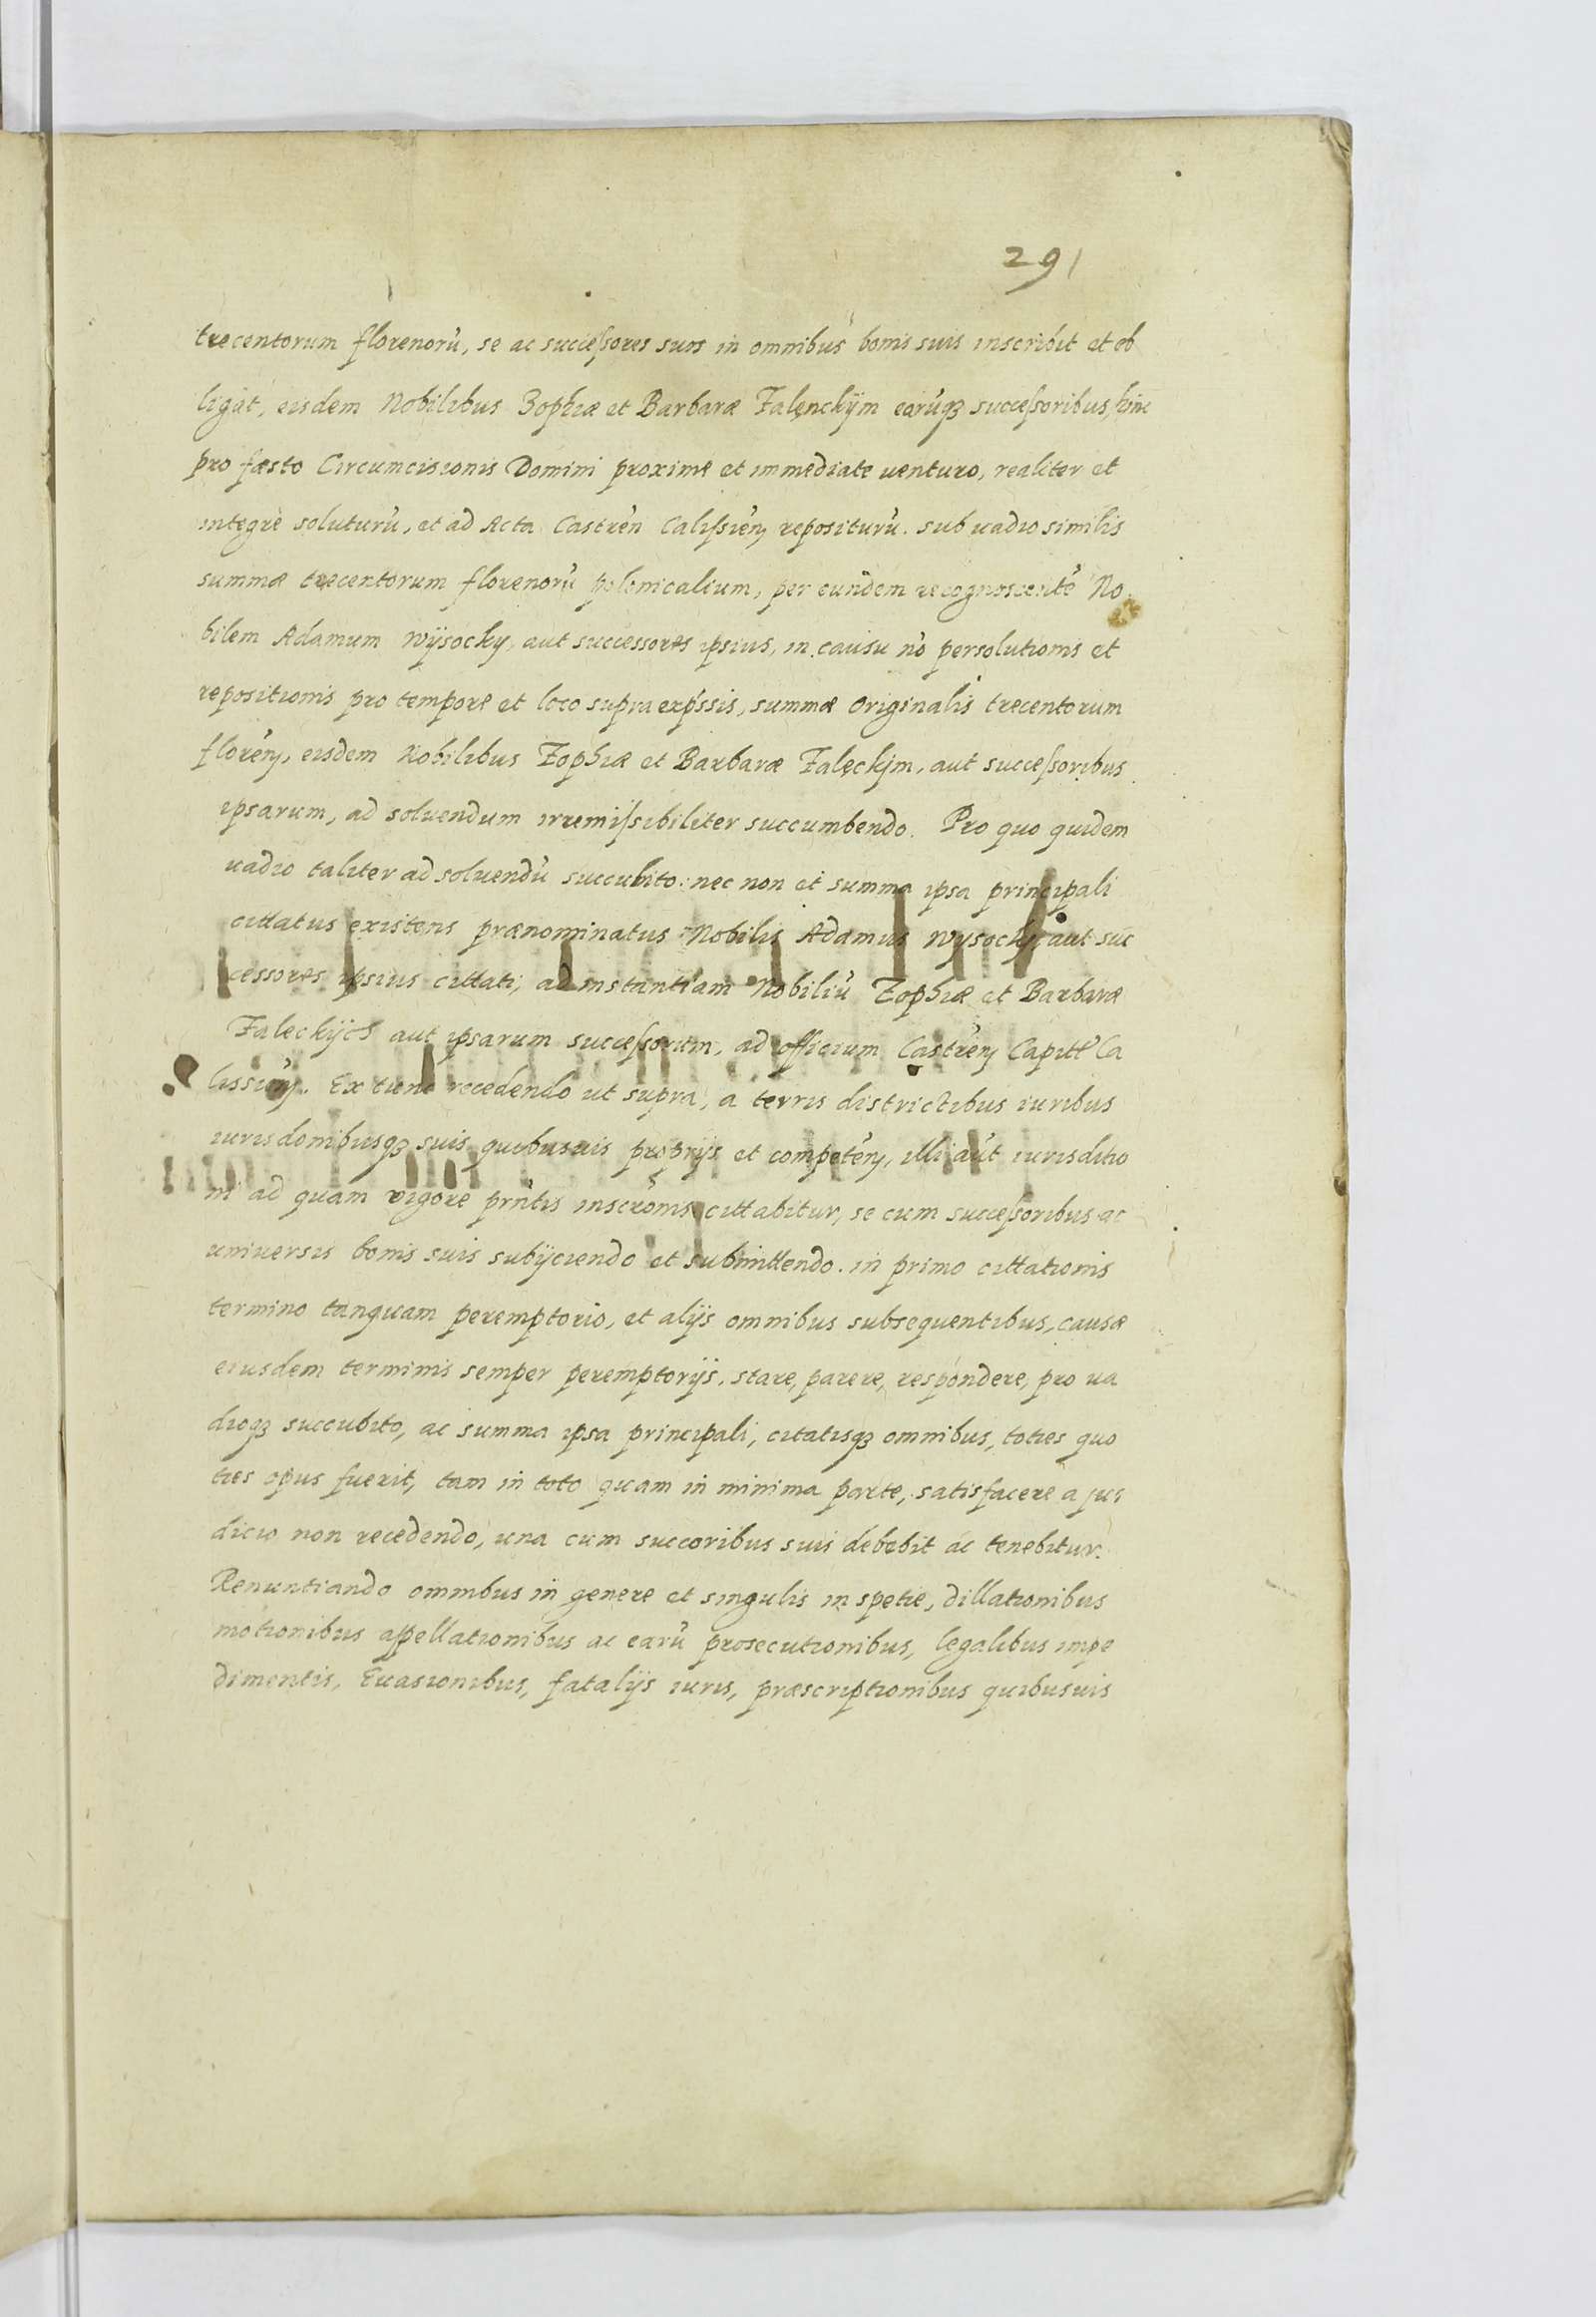 291
trecentorum florenorũ, se ac succeſsores suos in omnibus bonis suis inscribit et ob
ligat, eisdem Nobilibus Zophiæ et Barbaræ Falęnckÿm earũqꝫ succeſsoribus, hinc
pro fæsto Circumcisionis Domini proxime et immediate venturo, realiter et
integrè soluturũ, et ad Acta Castreñ Caliſsieñ repositurũ. sub vadio similis
summæ trecentorum florenorũ polonicalium, per eundem recognoscentẽ No
bilem Adamum Wÿsocky, aut successores ipsius, in causu nõ persolutionis et
repositionis pro tempore et loco supra exp̃ssis, summæ originalis trecentorum
floreñ, eisdem Nobilibus Zophiæ et Barbaræ Falęckÿm, aut succeſsoribus
ipsarum, ad soluendum irremiſsibiliter succumbendo. Pro quo quidem
uadio taliter ad soluendũ succubito: nec non et summa ipsa principali
cittatus existens prænominatus Nobilis Adamus Wysocky aut suc
cessores ipsius cittati, ad instantiam Nobiliũ Zophiæ et Barbaræ
Falęckÿch aut ipsarum succeſsorum, ad officium Castreñ Capitł Ca
lissieñ. Ex tunc recedendo ut supra, a terris districtibus iuribus
iurisdonibusqꝫ suis quibusuis proprÿs et competeñ, illi aũt iurisditio
ni ad quam vigore pr̃ntis inscr̃onis cittabitur, se cum succeſsoribus ac
uniuersis bonis suis subÿciendo et submittendo. in primo cittationis
termino tanquam peremptorio, et alÿs omnibus subsequentibus, causæ
eiusdem terminis semper peremptorÿs, stare, parere, respondere, pro ua
dioqꝫ succubito, ac summa ipsa principali, citatisqꝫ omnibus, toties quo
ties opus fuerit, tam in toto quam in minima parte, satisfacere a ju
dicio non recedendo, una cum succoribus suis debebit ac tenebitur.
Renuntiando omnibus in genere et singulis in spetie, dillationibus
motionibus appellationibus ac earũ prosecutionibus, legalibus impe
dimentis, Euasionibus, fatalÿs iuris, præscriptionibus quibusuis